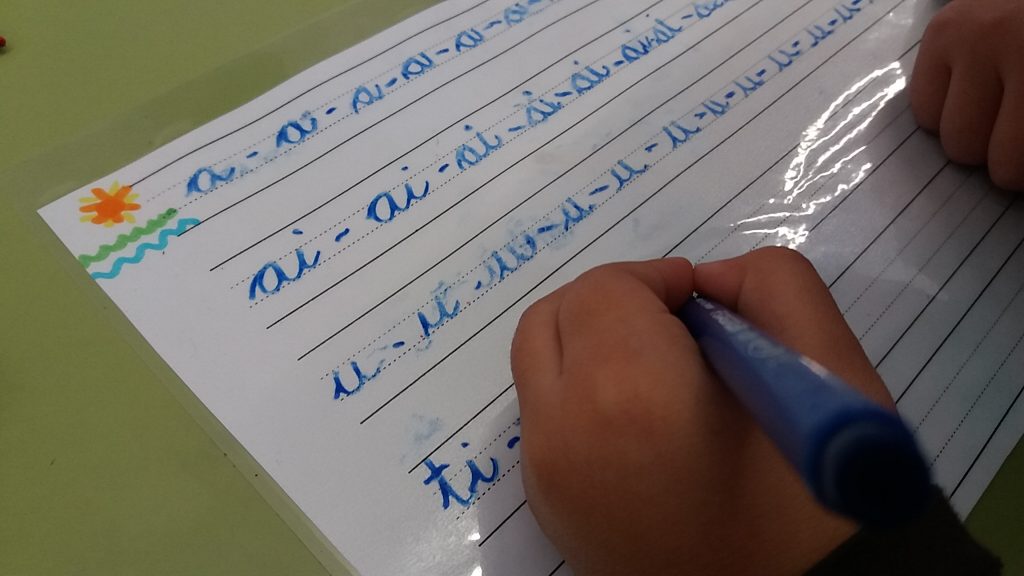 a - a - a - a - a - a
ai - ai - ai - ai - ai - ai - ai
u - u - u - u - u - u - u - u - u - u
ti -